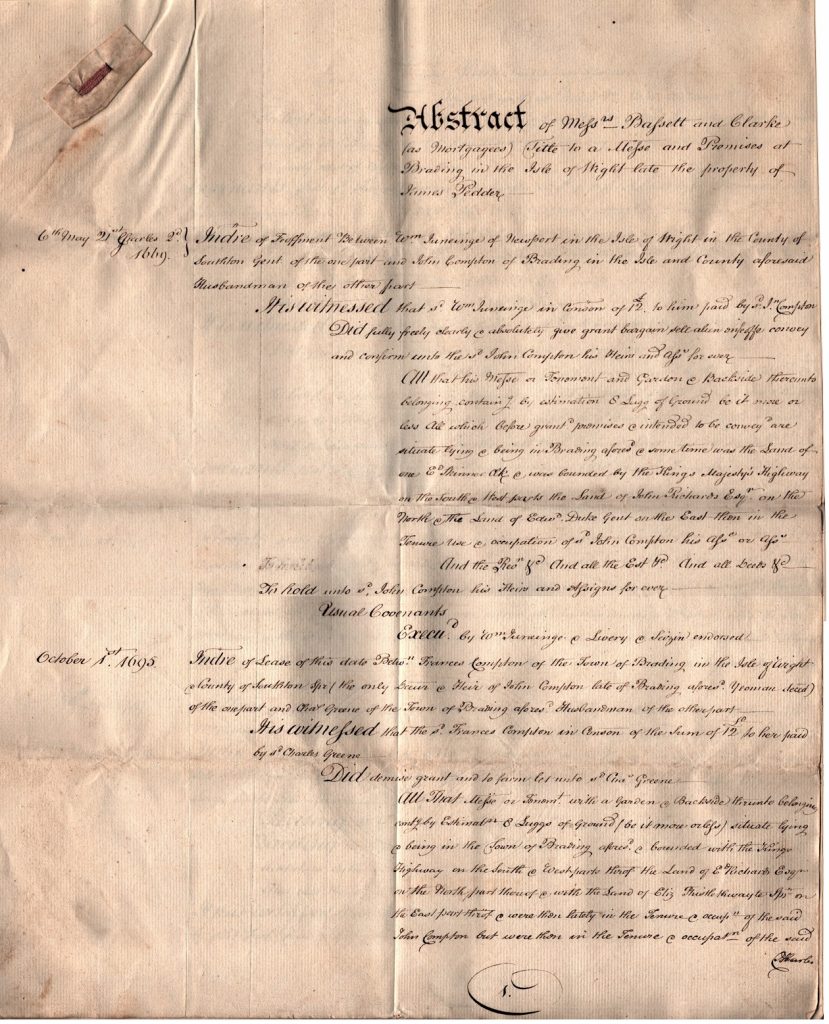 Abstract of Mess.rs Bassett and Clarke
(as Mortgagees) Title to a Messe and Premises at
Brading in the Isle of Wight late the property of
James Pedder
6th May 21st Charles 2d. } Indre of Feoffment Between Wm of Newport in the Isle of Wight in the County of
1669. Southton Gent. of the one part and John Compton of Brading in the Isle and County aforesaid
Husbandman of the other part
It is witnessed that sd. Wm in Conson of £12. to him paid by sd. Jn. Compton
Did fully freely clearly & absolutely give grant bargain sell alien enfeoffe convey
and confirm unto the sd. John Compton his Heirs and Asss for ever
All that his Messe or Tenement and Garden & Backside thereunto
belonging containg by estimation 8 Lugg of Ground be it more or
less All which before grantd premises & intended to be conveyd are
situate lying & being in Brading aforesd & some time was the Land of
one Ed. Skinner & was bounded by the Kings Majesty's Highway
on the South & West parts the Land of John Richards Esqr. on the
North & the Land of Edwd. Duke Gent on the East then in the
Tenure use & occupation of sd John Compton his Asss or Asss
And the Revs &c And all the Est &c And all Deeds &c
To hold
To hold unto sd. John Compton his Heirs and Assigns for ever
Usual Covenants
Execud by Wm & Livery & Seizin endorsed
October 1st. 1695. Indre of Lease of this date Betwn Frances Compton of the Town of Brading in the Isle of Wight
& County of Southton Spr (the only & Heir of John Compton late of Brading aforesd. Yeoman decd)
of the one part and Chas Greene of the Town of Brading aforesd. Husbandman of the other part
It is witnessed that the sd. Frances Compton in Conson of the Sum of £12 to her paid
by sd Charles Greene
Did demise grant and to farm let unto sd Chas Greene
All That Messe or Tenemt. with a Garden & Backside thrunto belonging
contg by Estimatn 8 Luggs of Ground (be it more or less) situate lying
& being in the Town of Brading aforesd. & bounded with the Kings
Highway on the South & West parts throf the Land of E Richards Esqr
on the North part thereof & with the Land of Eliz Thistlethwayte Spr on
the East part throf & were then lately in the Tenure & occupn of the said
John Compton but were then in the Tenure & occupatn of the said
Charles
1.